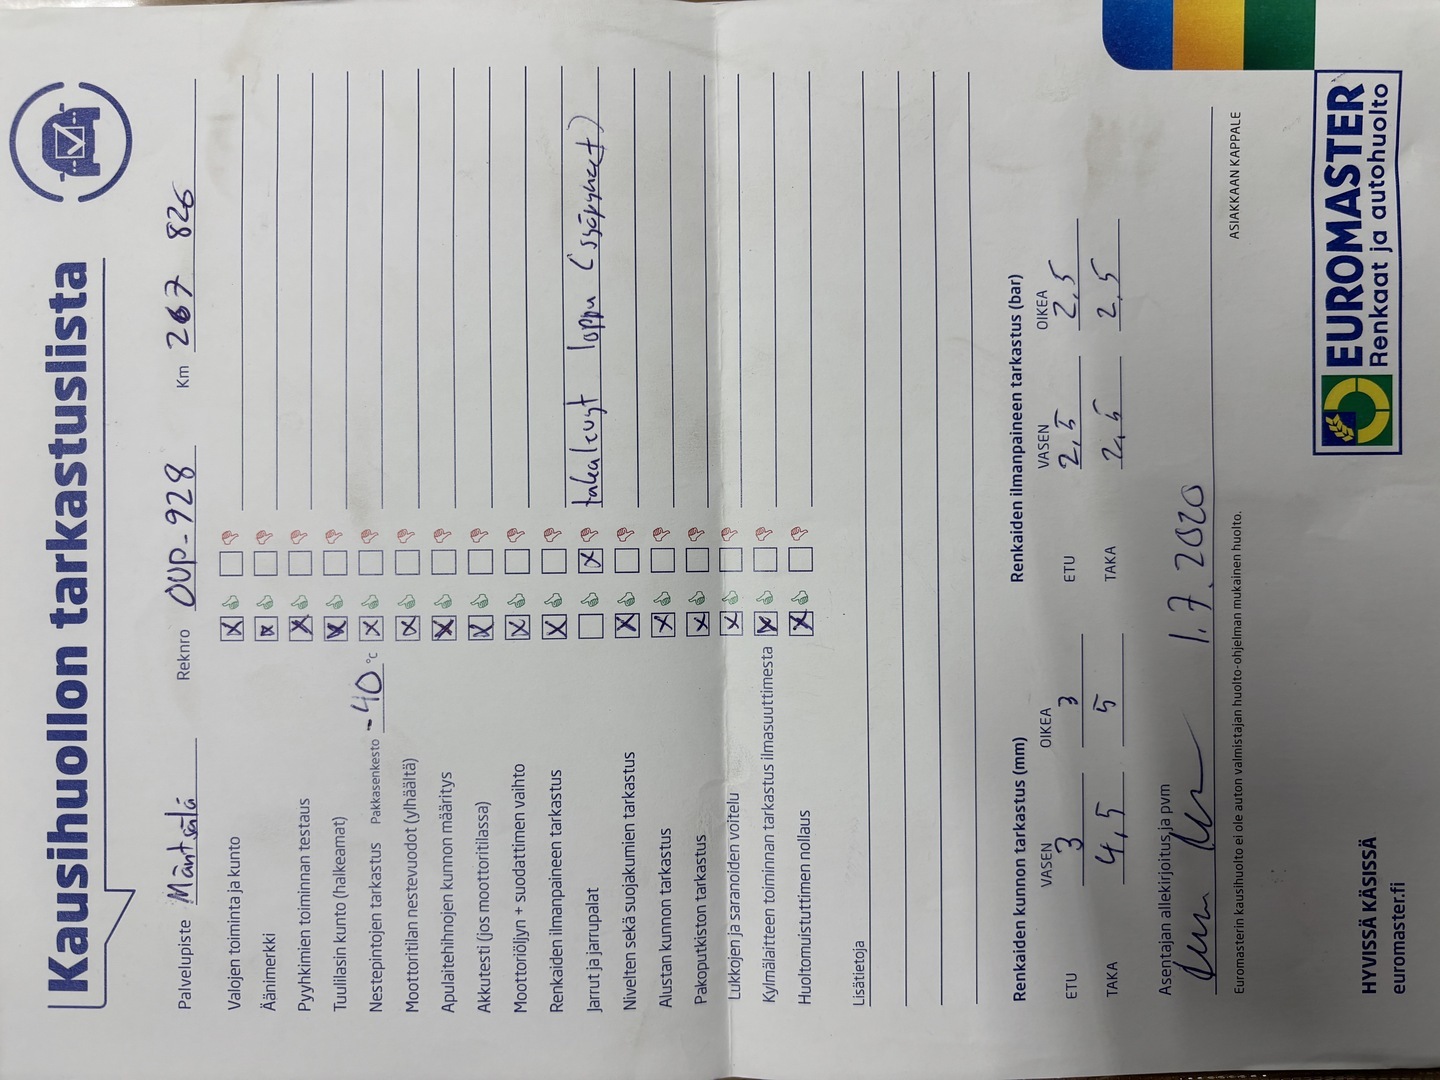 Kausihuollon tarkastuslista
Palvelupiste Mäntsälä Reknro OUP-928 Km 267 826
Valojen toiminta ja kunto X
Äänimerkki X
Pyyhkimien toiminnan testaus X
Tuulilasin kunto (halkeamat) X
Nestepintojen tarkastus Pakkasenkesto -40 °C X
Moottoritilan nestevuodot (ylhäältä) X
Apulaitehihnojen kunnon määritys X
Akkutesti (jos moottoritilassa) X
Moottoriöljyn + suodattimen vaihto X
Renkaiden ilmanpaineen tarkastus X
Jarrut ja jarrupalat X takalevyt loppu (syöpyneet)
Nivelten sekä suojakumien tarkastus X
Alustan kunnon tarkastus X
Pakoputkiston tarkastus X
Lukkojen ja saranoiden voitelu X
Kylmälaitteen toiminnan tarkastus ilmasuuttimesta X
Huoltomuistuttimen nollaus X
Lisätietoja
Renkaiden kunnon tarkastus (mm) Renkaiden ilmanpaineen tarkastus (bar)
VASEN OIKEA VASEN OIKEA
ETU 3 3 ETU 2,5 2,5
TAKA 4,5 5 TAKA 2,5 2,5
Asentajan allekirjoitus ja pvm
1.7.2020
Euromasterin kausihuolto ei ole auton valmistajan huolto-ohjelman mukainen huolto.
ASIAKKAAN KAPPALE
HYVISSÄ KÄSISSÄ
euromaster.fi
EUROMASTER
Renkaat ja autohuolto